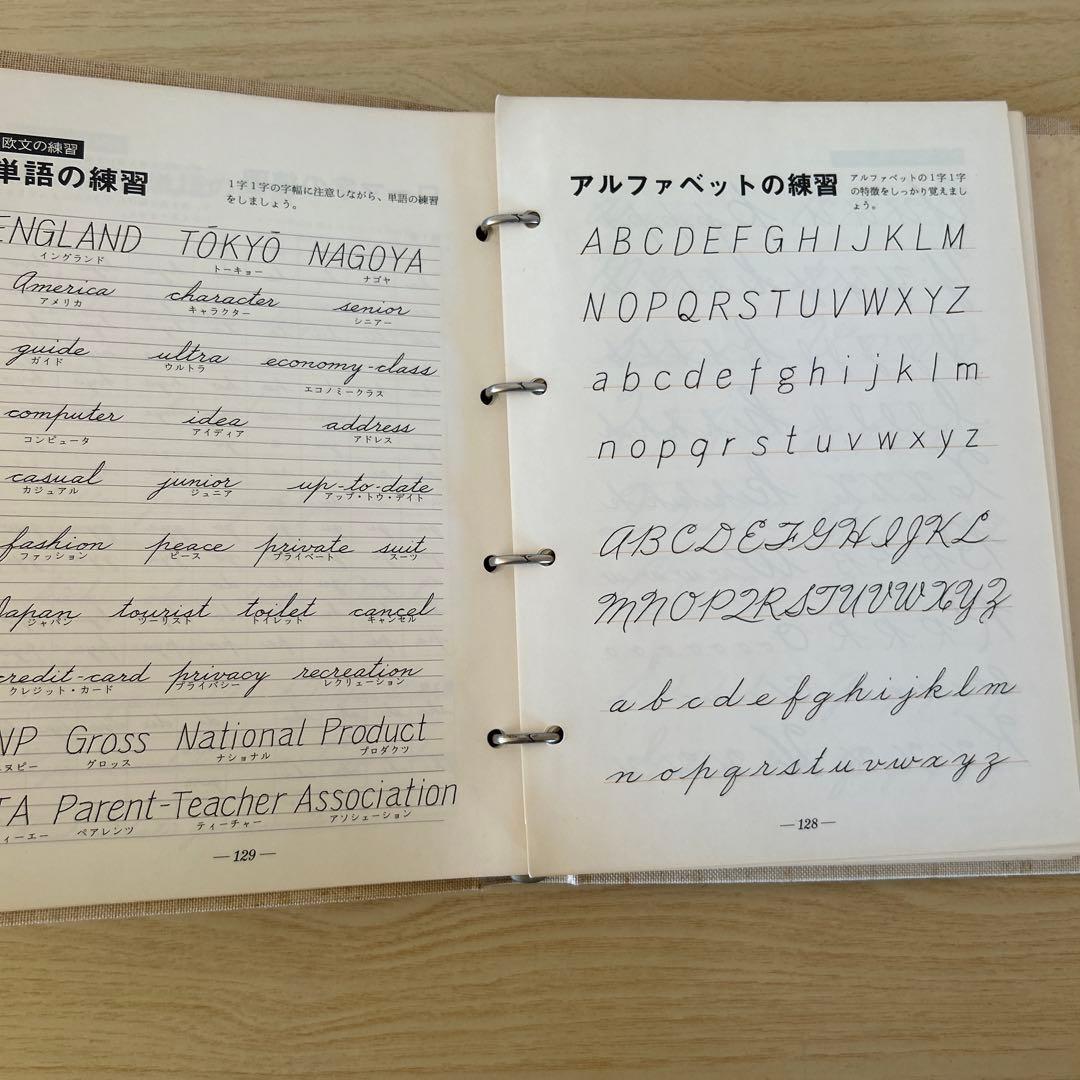 欧文の練習
単語の練習
1字1字の字幅に注意しながら、単語の練習
をしましょう。
ENGLAND TŌKYŌ NAGOYA
イングランド トーキョー ナゴヤ
America character senior
アメリカ キャラクター シニアー
guide ultra economy-class
ガイド ウルトラ エコノミークラス
computer idea address
コンピュータ アイディア アドレス
casual junior up-to-date
カジュアル ジュニア アップ・トウ・デイト
fashion peace private suit
ファッション ピース プライベート スーツ
Japan tourist toilet cancel
ジャパン ツーリスト トイレット キャンセル
credit-card privacy recreation
クレジット・カード プライバシー レクリェーション
NP Gross National Product
エヌピー グロッス ナショナル プロダクツ
TA Parent-Teacher Association
ィーエー ペアレンツ ティーチャー アソシェーション
—129—
アルファベットの練習
アルファベットの1字1字
の特徴をしっかり覚えまし
ょう。
ABCDEFGHIJKLM
NOPQRSTUVWXYZ
abcdefghijklm
nopqrstuvwxyz
ABCDEFGHIJKL
MNOPQRSTUVWXYZ
abcdefghijklm
nopqrstuvwxyz
—128—